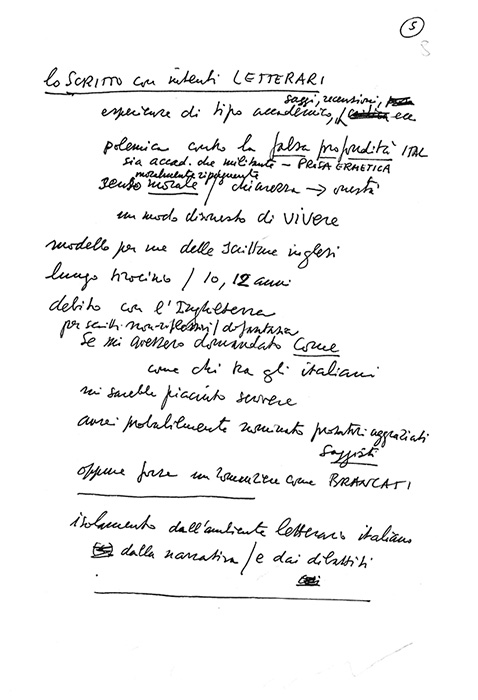 5
5
lo SCRITTO con intenti LETTERARI
saggi, recensioni,
esperienze di tipo accademico, ecc
polemica contro la falsa profondità ITAL
sia accad. che militante – PROSA ERMETICA
moralmente ripugnante
senso morale / chiarezza → onestà
un modo disonesto di VIVERE
modello per me delle scritture inglesi
lungo tirocinio / 10, 12 anni
debito con l'Inghilterra
per scritti non riflessivi / di fantasia
Se mi avessero domandato come
come chi tra gli italiani
mi sarebbe piaciuto scrivere
avrei probabilmente nominato prosatori aggraziati
saggisti
oppure forse un romanziere come BRANCATI
isolamento dall'ambiente letterario italiano
dalla narrativa / e dai dibattiti